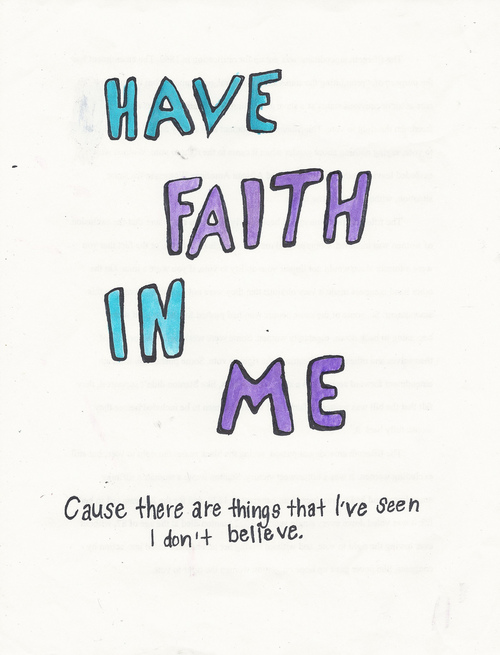 HAVE
FAITH
IN
ME
Cause there are things that I've seen
I don't believe.